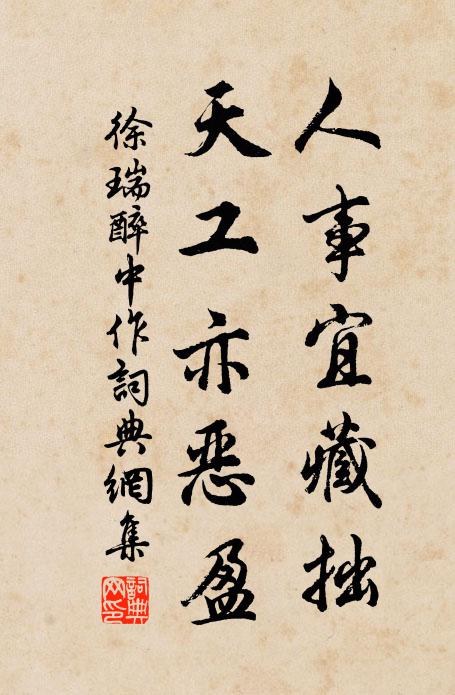 人事宜藏拙
天工亦惡盈
徐瑞醉中作詞典網集
詞典